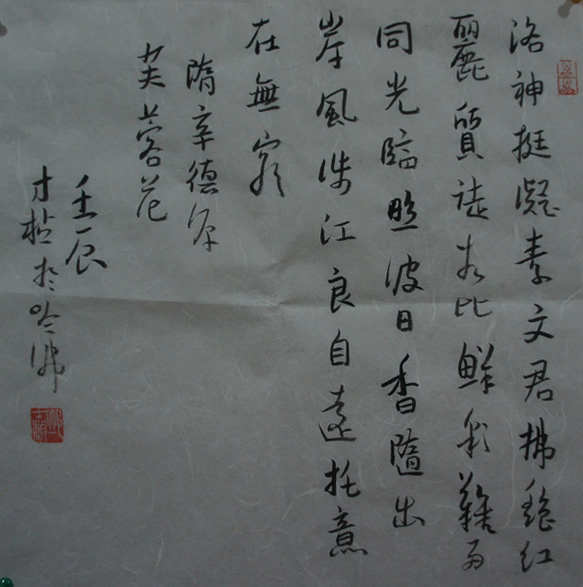 洛神挺凝素文君拂艷红
麗質徒相比鮮彩難
同光臨照波日香隨出
岸風涉江良自遠托意
在無窮
隋辛德源
芙蓉花
壬辰
才於哈佛